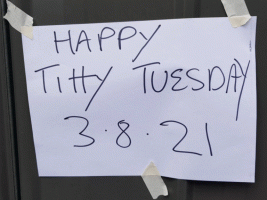 HAPPY
Titty TUESDAY
3.8.21